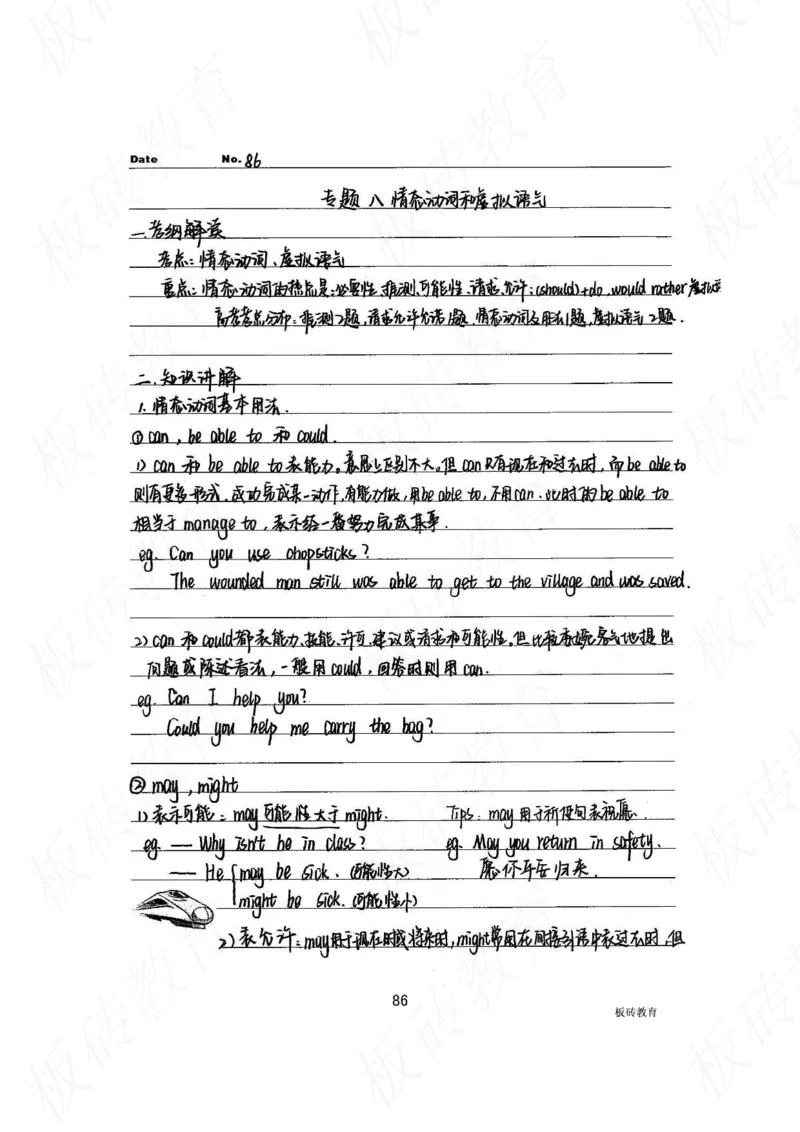 Date No. 86
专题八 情态动词和虚拟语气
一.考纲解读
考点:情态动词、虚拟语气
重点:情态动词的热点是:必要性、推测、可能性、请求、允许;(should)+do、would rather虚拟
高考考点分布:推测2题,请求允许允诺1题、情态动词文用法1题,虚拟语气2题.
二.知识讲解
1.情态动词基本用法.
①can,be able to 和 could.
1) can 和 be able to 表能力。意思上区别不大。但 can 只有现在和过去时,而 be able to
则有更多形式。成功完成某一动作,有能力做,用be able to,不用can.此时的be able to
相当于 manage to,表示经一番努力完成某事.
eg. Can you use chopsticks?
The wounded man still was able to get to the village and was saved.
2) can 和 could都表能力、技能、许可、建议或请求和可能性。但比较委婉客气地提出
问题或陈述看法,一般用could,回答时则用 can.
eg. Can I help you?
Could you help me carry the bag?
②may,might
1) 表示可能:may可能性大于might. Tips:may用于祈使句表祝愿.
eg. — Why isn't he in class? eg. May you return in safety.
— He { may be sick. (可能性大) 愿你平安归来.
might be sick. (可能性小)
2) 表允许:may用于现在时或将来时,might常用在间接引语中表过去时,但
86
板砖教育